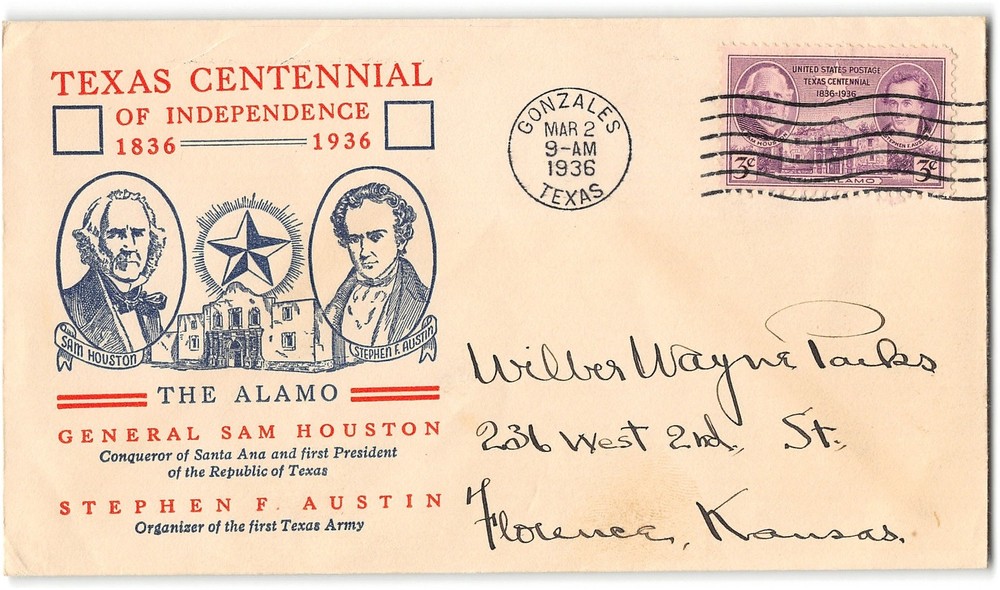 TEXAS CENTENNIAL
OF INDEPENDENCE
1836 1936
SAM HOUSTON
STEPHEN F. AUSTIN
THE ALAMO
GENERAL SAM HOUSTON
Conqueror of Santa Ana and first President
of the Republic of Texas
STEPHEN F. AUSTIN
Organizer of the first Texas Army
GONZALES
MAR 2
9-AM
1936
TEXAS
UNITED STATES POSTAGE
TEXAS CENTENNIAL
1836-1936
SAM HOUSTON
STEPHEN F. AUSTIN
3¢ 3¢
ALAMO
Wilber Wayne Parks
236 West 2nd. St.
Florence, Kansas.